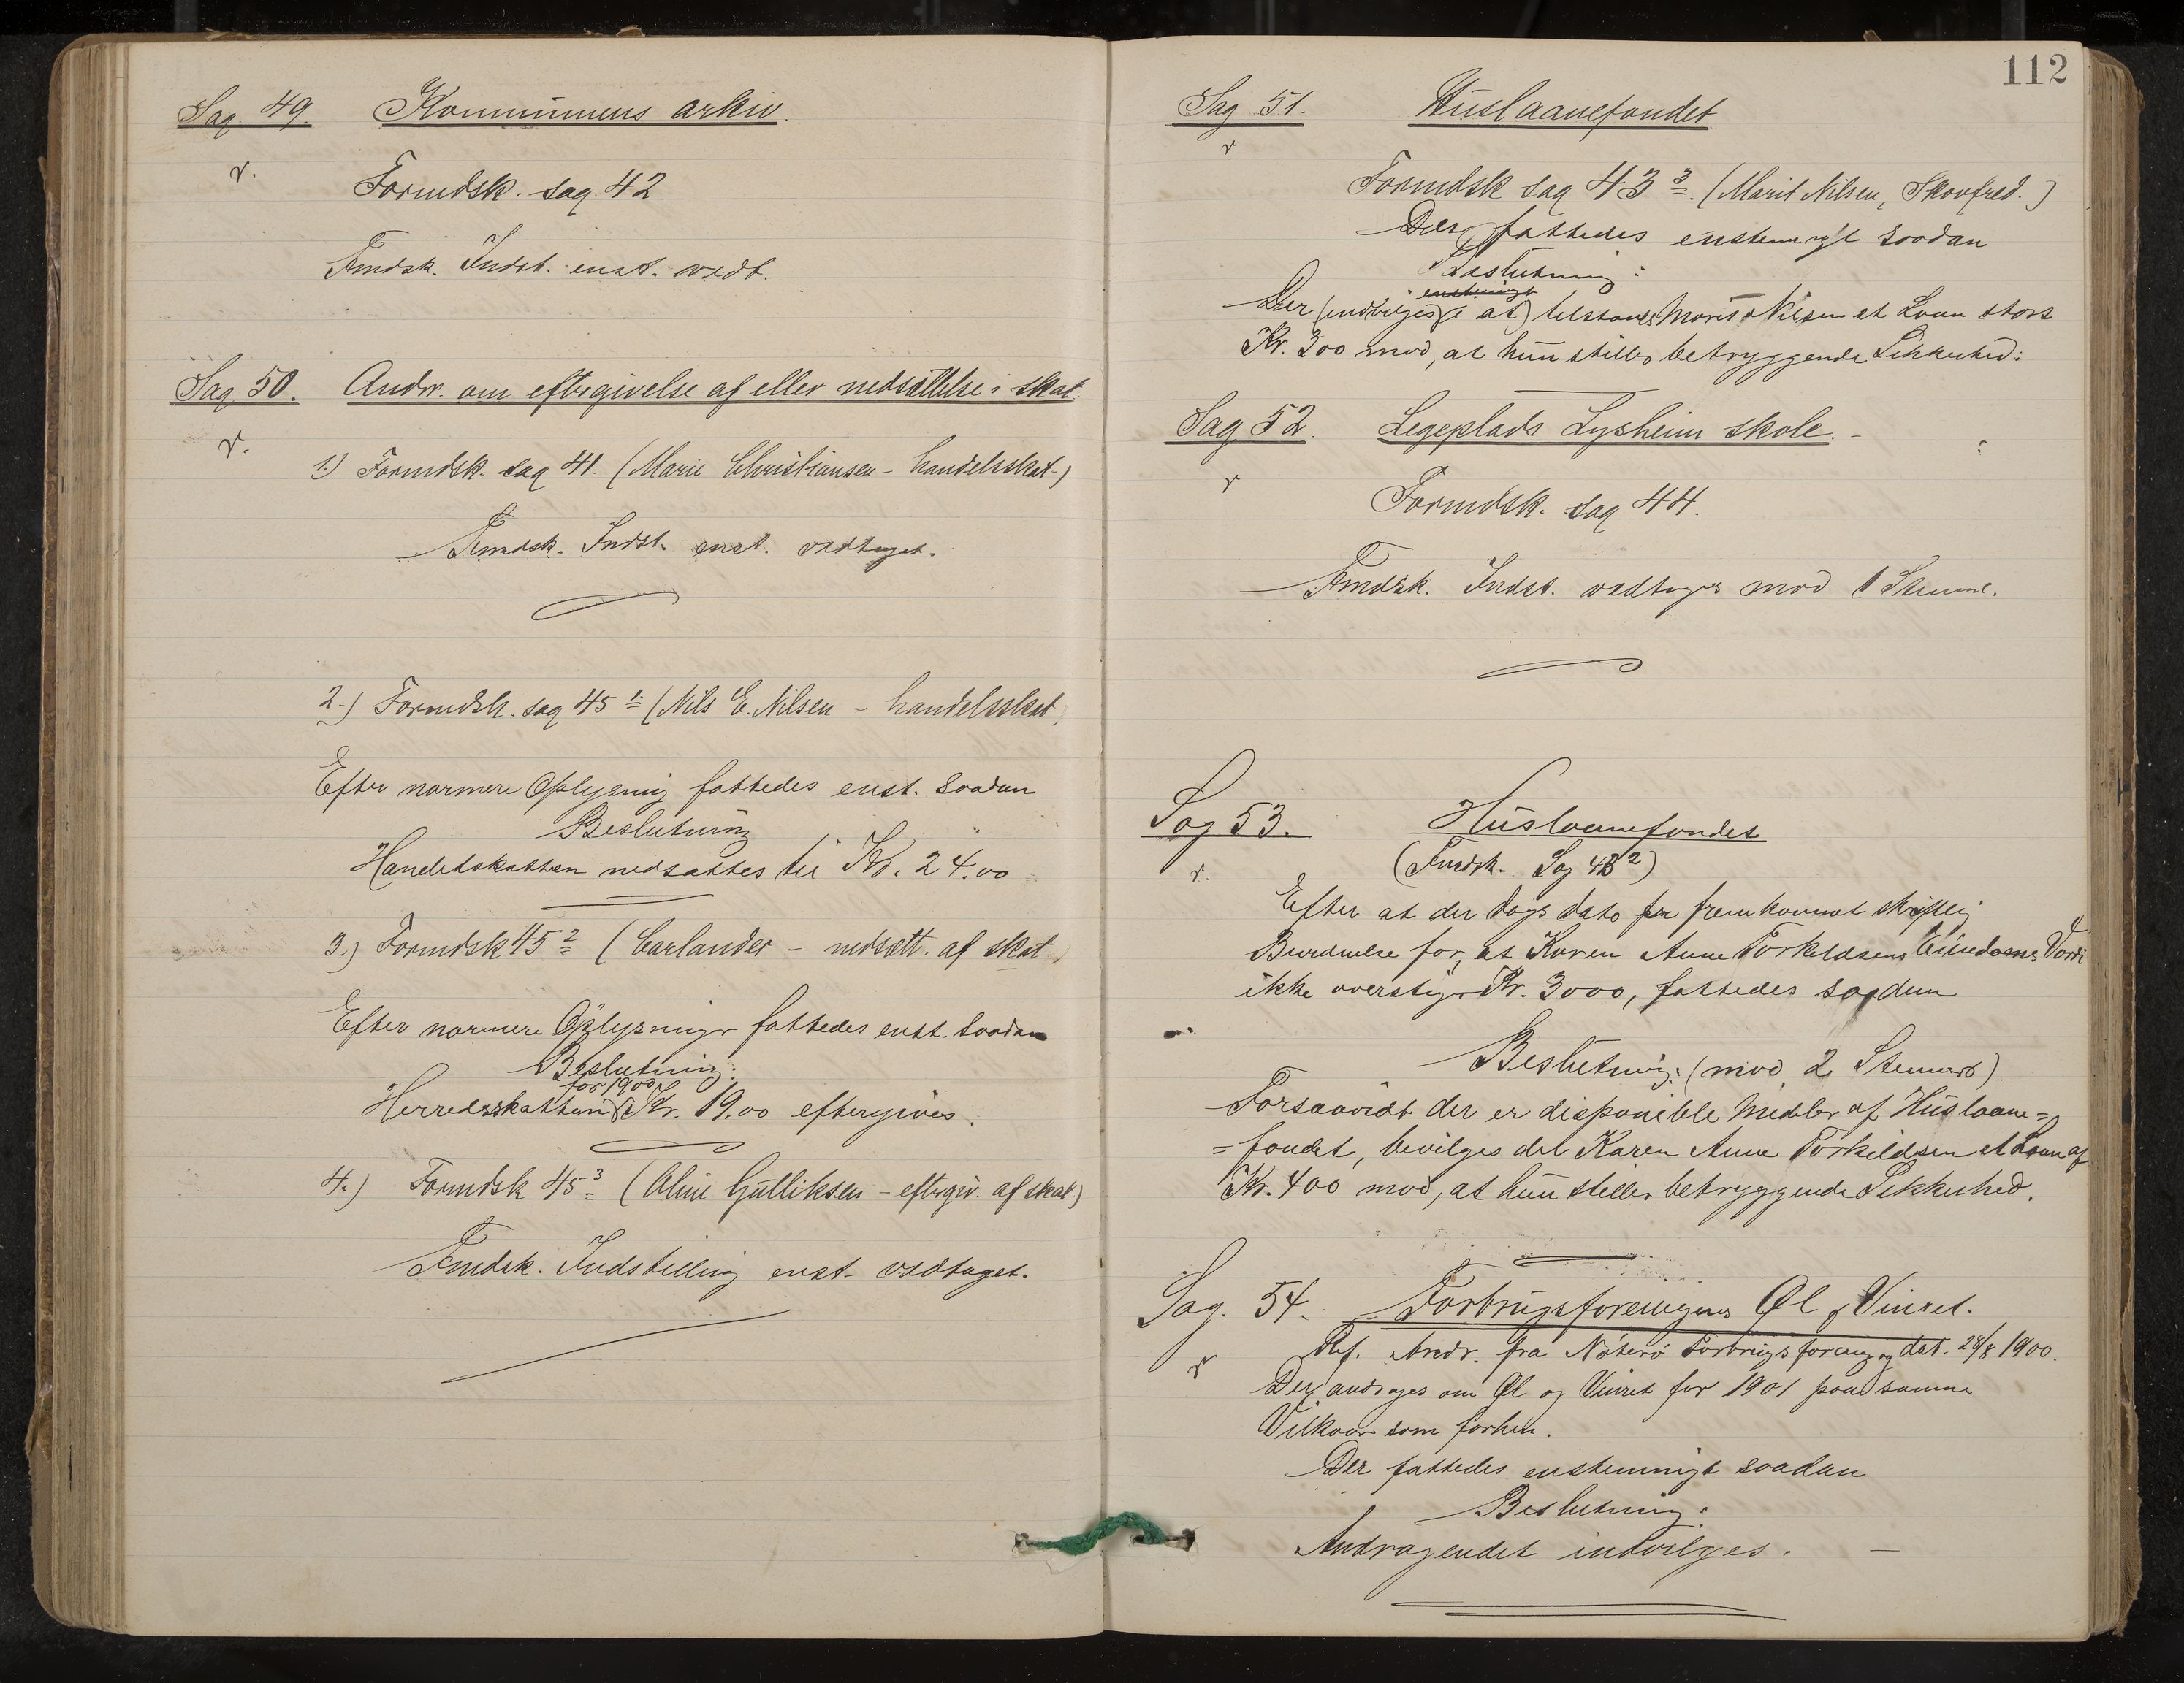 Sag. 49. Kommunens arkiv.
v.
Formdsk. sag. 42.
Fmdsk. Indst. enst. vedt.
Sag 50. Andr. om eftergivelse af eller nedsættelse i skat.
v.
1.) Formdsk. sag 41. (Marie Christiansen - handelsskat.)
Fmdsk. Indst. enst. vedtaget.
2.) Formdsk. sag 45 1. (Nils E. Nilsen - handelsskat)
Efter nærmere Oplysning fattedes enst. saadan
Beslutning
Handelsskatten nedsættes til Kr. 24.00
3.) Formdsk 45 2 (Carlander - nedsætt. af skat)
Efter nærmere Oplysninger fattedes enst. saadan
Beslutning:
for 1900
Herredsskatten Kr. 19.00 eftergives.
4.) Formdsk 45 3. (Oline Gulliksen - eftergiv. af skat)
Fmdsk. Indstilling enst. vedtaget.
112
Sag 51. Huslaanefondet
v
Formdsk sag 43 3. (Marit Nilsen, Skovfred.)
Der fattedes enstemmigt saadan
Beslutning:
enstemmigt
Der (indvilges i at) tilstaaes Marit Nilsen et Laan stort
Kr. 300 mod, at hun stiller betryggende Sikkerhed.
Sag 52. Legeplads Lysheim skole. -
v
Formdsk. sag 44.
Fmdsk. Indst. vedtages mod 1 Stemme.
Sag 53. Huslaanefondet
v.
(Fmdsk. Sag 43 2)
Efter at der Dags Dato er fremkommet skriftlig
Bevidnelse for, at Karen Anne Torkildsens Eiendoms Værdi
ikke overstiger Kr. 3000, fattedes saadan
Beslutning: (mod 2 Stemmer)
Forsaavidt der er disponible Midler af Huslaane=
=fondet, bevilges det Karen Anne Torkildsen et Laan af
Kr. 400 mod, at hun stiller betryggende Sikkerhed.
Sag. 54. Forbrugsforeningens Øl og Vinret.
v
Ref. Andr. fra Nøterø Forbrugsforening dat. 28/8 1900.
Der andrages om Øl og Vinret for 1901 paa samme
Vilkaar som forhen.
Der fattedes enstemmigt saadan
Beslutning:
Andragendet indvilges. -